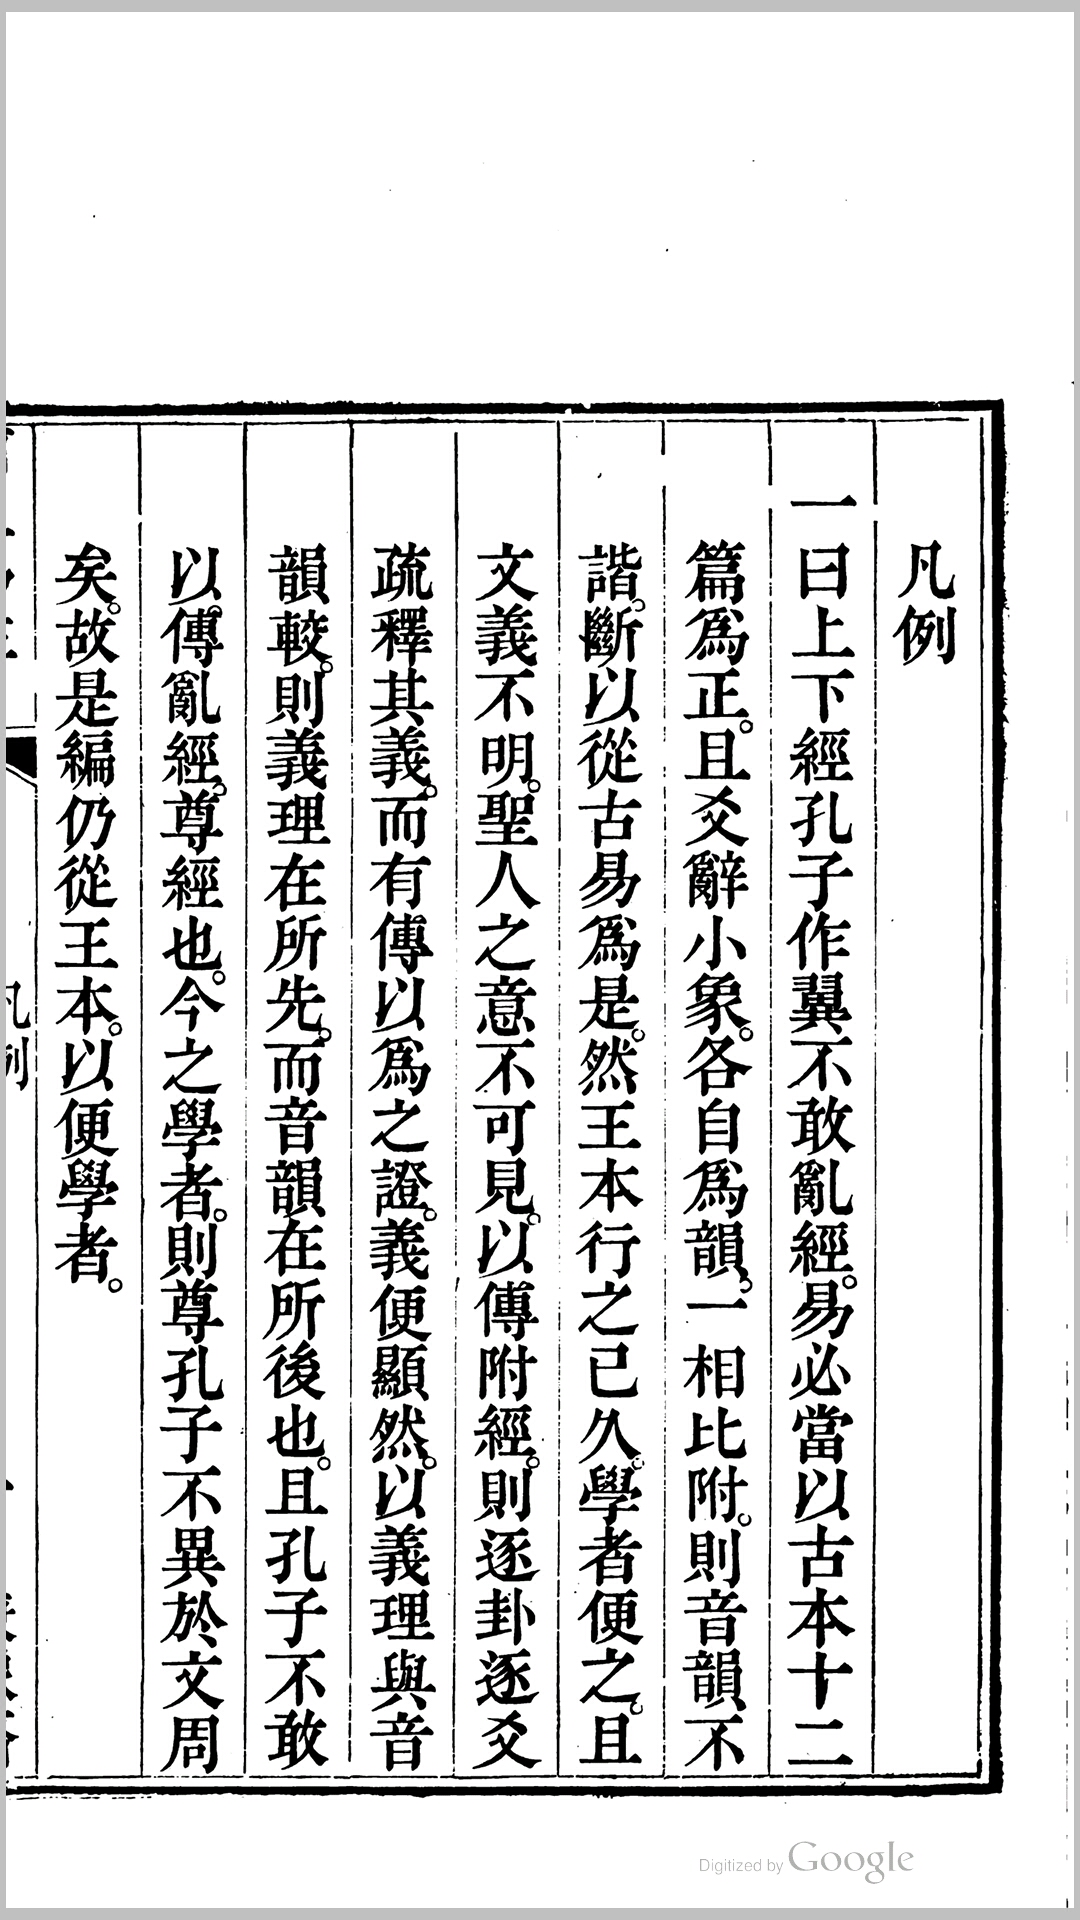 凡例
一曰上下經孔子作翼不敢亂經。易必當以古本十二
篇爲正。且爻辭小象。各自爲韻。一相比附。則音韻不
諧。斷以從古易爲是。然王本行之已久。學者便之。且
文義不明。聖人之意不可見。以傳附經。則逐卦逐爻
疏釋其義。而有傳以爲之證。義便顯然。以義理與音
韻較。則義理在所先。而音韻在所後也。且孔子不敢
以。傳亂經。尊經也。今之學者。則尊孔子不異於文周
矣。故是編仍從王本。以便學者。
凡例
Digitized by Google